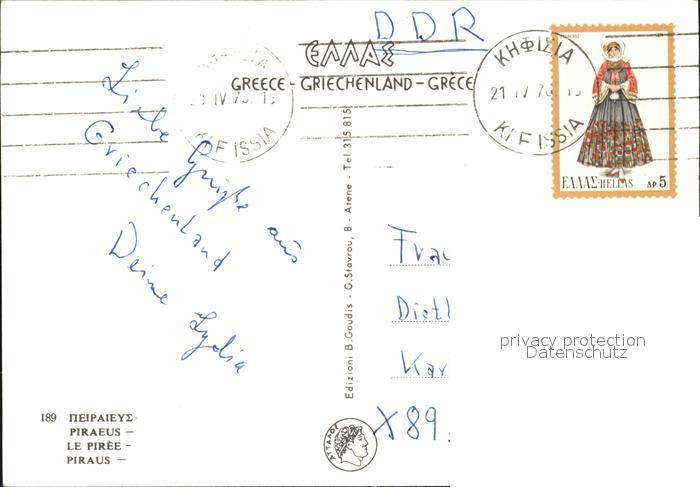 DDR
ΕΛΛΑΣ
GREECE - GRIECHENLAND - GRÈCE
ΚΗΦΙΣΙΑ
21 IV 76. 15
KIFISSIA
ΚΗΦΙΣΙΑ
21 IV 76 15
KIFISSIA
ΕΛΛΑΣ-HELLAS ΔΡ. 5
Liebe Grüße aus
Griechenland
Deine Lydia
Edizioni B.Goudis - G.Stavrou, 8 - Atene - Tel 315 815
Frau
Dietl
Kar
X89
privacy protection
Datenschutz
189 ΠΕΙΡΑΙΕΥΣ-
PIRAEUS –
LE PIRÉE -
PIRAUS –
ΑΤΤΑΛΟΣ